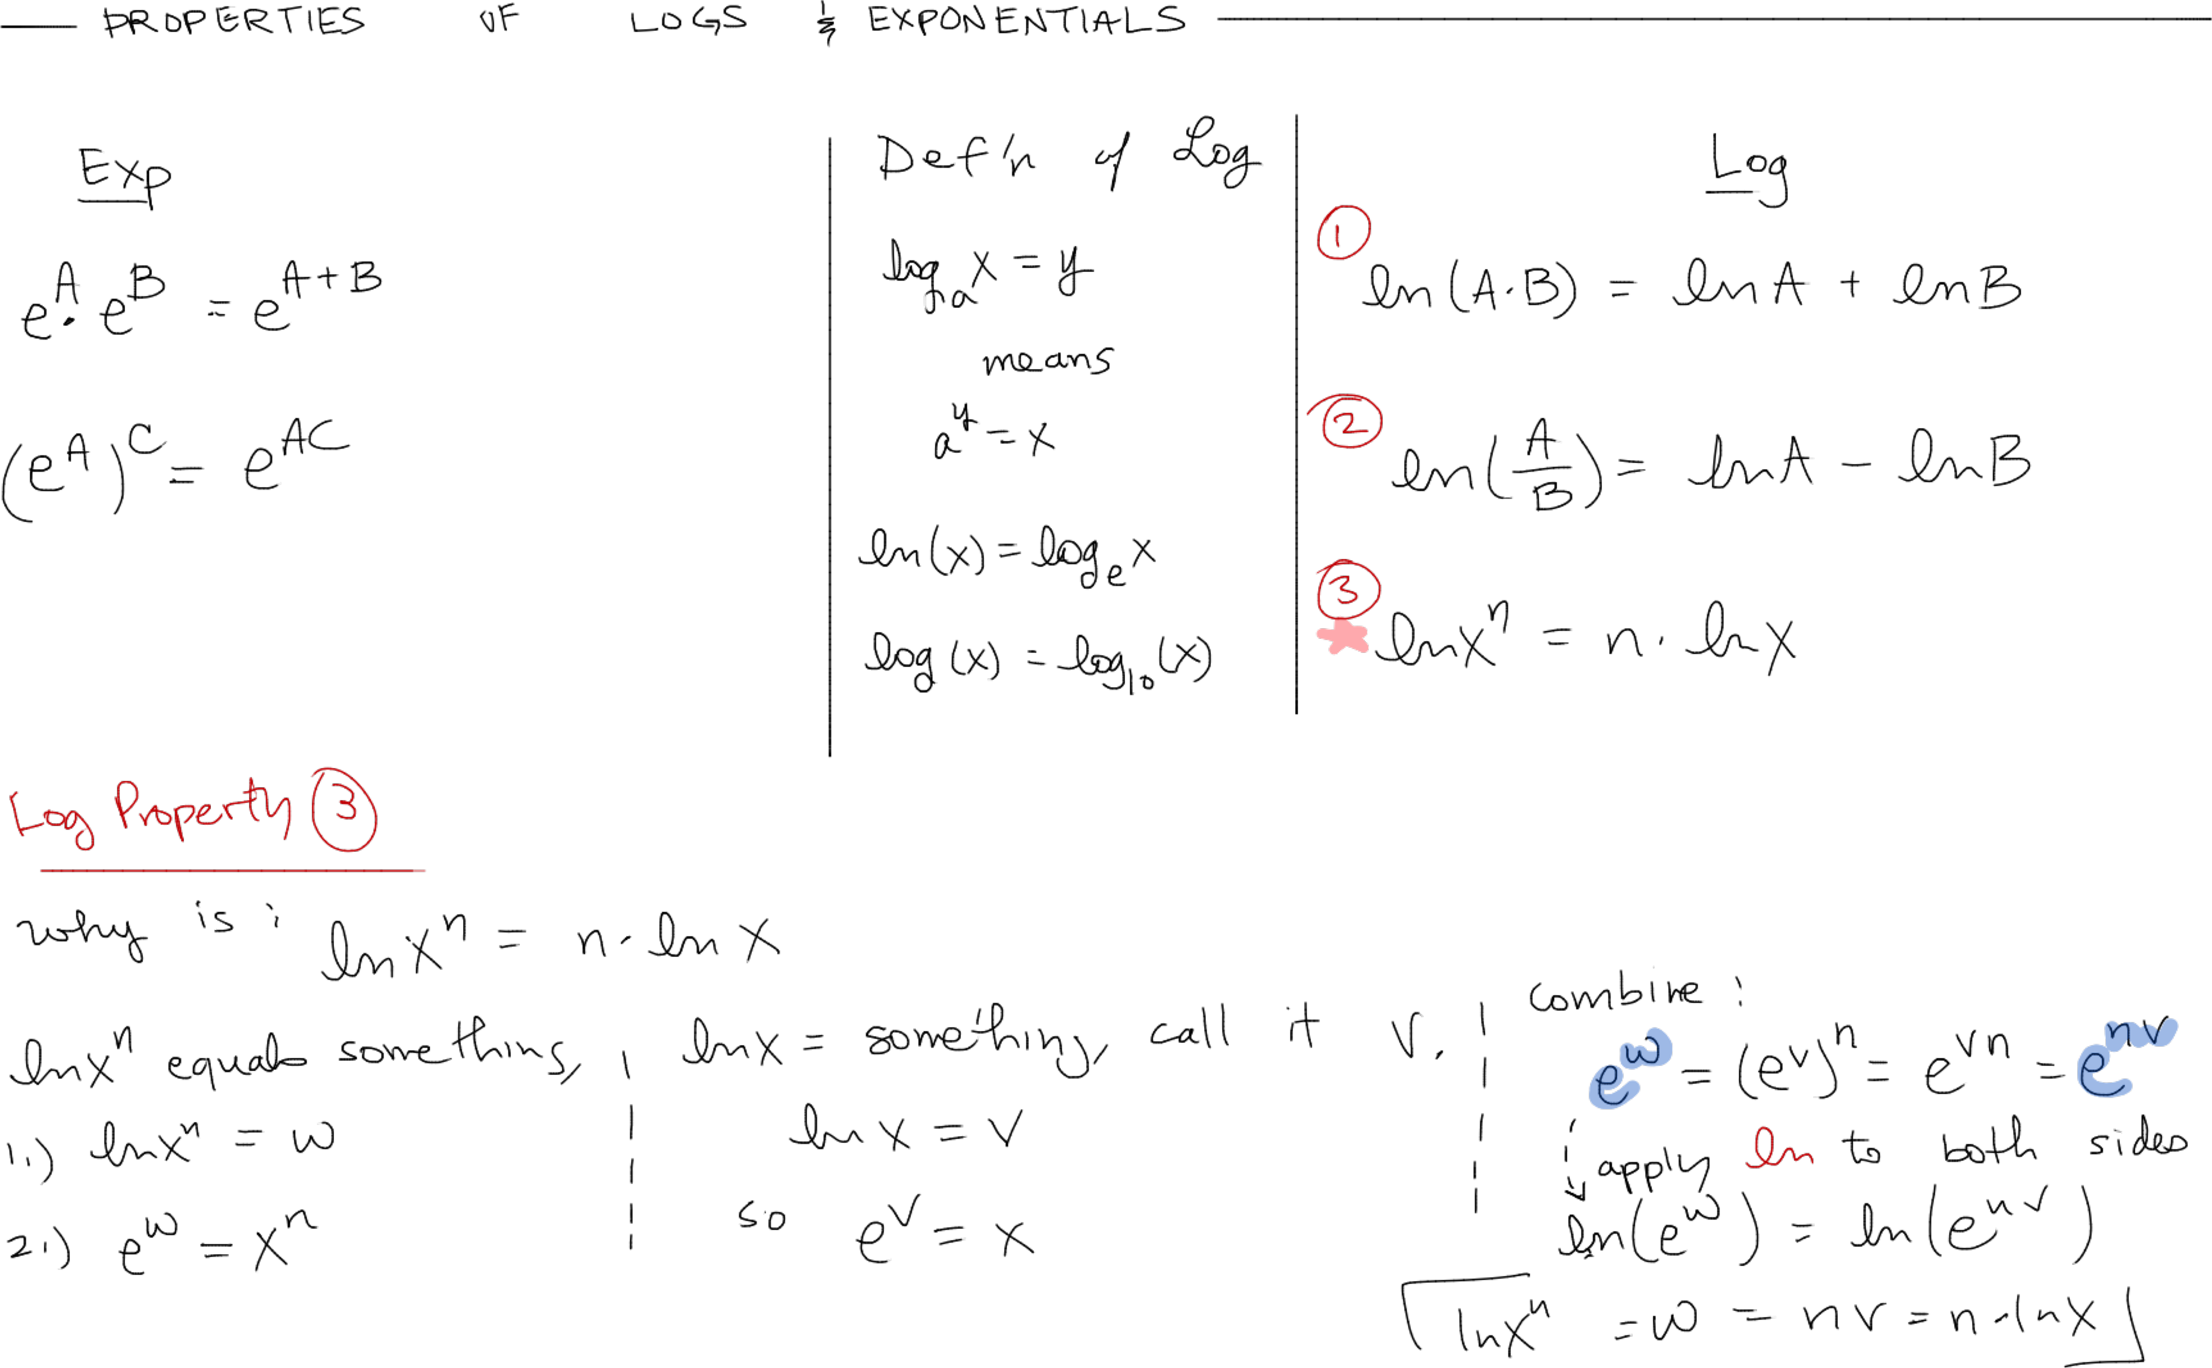 PROPERTIES OF LOGS & EXPONENTIALS
Exp
e^A · e^B = e^{A+B}
(e^A)^C = e^{AC}
Def'n of Log
log_a x = y
means
a^y = x
ln(x) = log_e x
log(x) = log_10(x)
Log
① ln(A·B) = lnA + lnB
② ln(A/B) = lnA − lnB
③ lnx^n = n · lnx
Log Property ③
why is: lnx^n = n · ln x
lnx^n equals something,
1.) lnx^n = w
2.) e^w = x^n
lnx = something, call it v.
ln x = v
so e^v = x
combine:
e^w = (e^v)^n = e^{vn} = e^{nv}
apply ln to both sides
ln(e^w) = ln(e^{nv})
lnx^n = w = nv = n·lnx